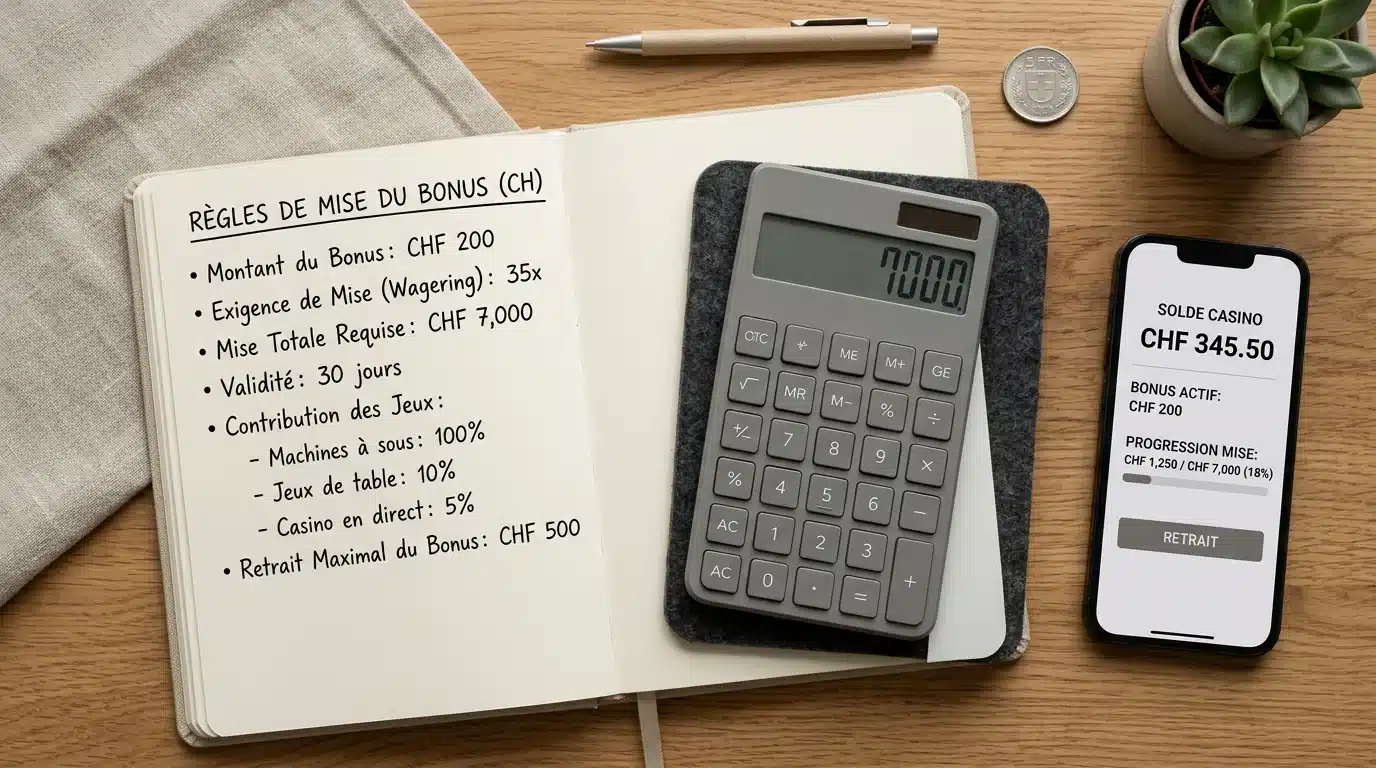 RÈGLES DE MISE DU BONUS (CH)
• Montant du Bonus: CHF 200
• Exigence de Mise (Wagering): 35x
• Mise Totale Requise: CHF 7,000
• Validité: 30 jours
• Contribution des Jeux:
- Machines à sous: 100%
- Jeux de table: 10%
- Casino en direct: 5%
• Retrait Maximal du Bonus: CHF 500
5 FR
7000.
ME M+ GE
√ MR M- % ÷
+/- 7 8 9 ×
% 4 5 6 −
AC 1 2 3
AC 0 . = +
SOLDE CASINO
CHF 345.50
BONUS ACTIF:
CHF 200
PROGRESSION MISE:
CHF 1,250 / CHF 7,000 (18%)
RETRAIT